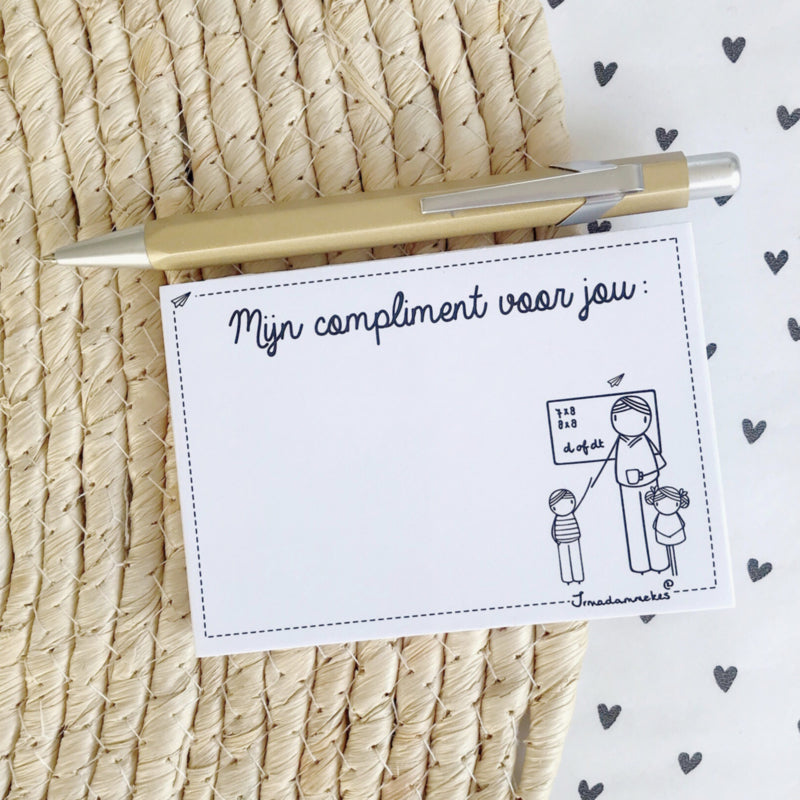 Mijn compliment voor jou:
7x8
8x8
d of dt
@
Irmadamnekes